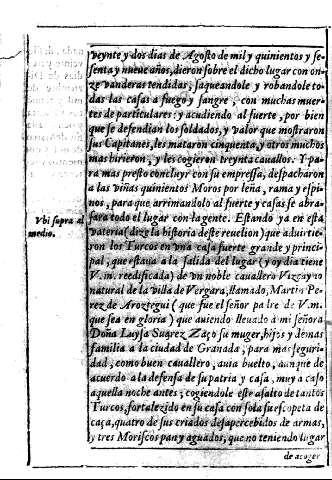 veynte y dos dias de Agosto de mil y quinientos y se-
senta y nueue años, dieron sobre el dicho lugar con on-
ze vanderas tendidas, saqueandole y robandole to-
das las casas a fuego y sangre, con muchas muer-
tes de particulares: y acudiendo al fuerte, por bien
que se defendian los soldados, y valor que mostraron
sus Capitanes, les mataron cinquenta, y otros muchos
mas hirieron, y les cogieron treynta cauallos. Y pa-
ra mas presto concluyr con su empressa, despacharon
a las viñas quinientos Moros por leña, rama y espi-
nos, para que arrimandolo al fuerte y casas se abra-
sara todo el lugar con la gente. Estando ya en està
Vbi supra al
medio.
vateria (dize la historia deste reuelion) que aduirtie-
ron los Turcos en vna casa fuerte grande y princi-
pal, que estaua a la salida del lugar (y oy dia tiene
V. m. reedificada) de vn noble cauallero Vizcayno
natural de la villa de Vergara, llamado, Martin Pe-
rez de Aroztegui (que fue el señor padre de V. m.
que sea en gloria) que auiendo lleuado a mi señora
Doña Luysa Suarez Zazo su muger, hijos y demas
familia a la ciudad de Granada, para mas seguri-
dad, como buen cauallero, auia buelto, aunque de
acuerdo a la defensa de su patria y casa, muy a caso
aquella noche antes; cogiendole este asalto de tantos
Turcos, fortalezido en su casa con sola su escopeta de
caça, quatro de sus criados desapercebidos de armas,
y tres Moriscos paniaguados, que no teniendo lugar
de acoger